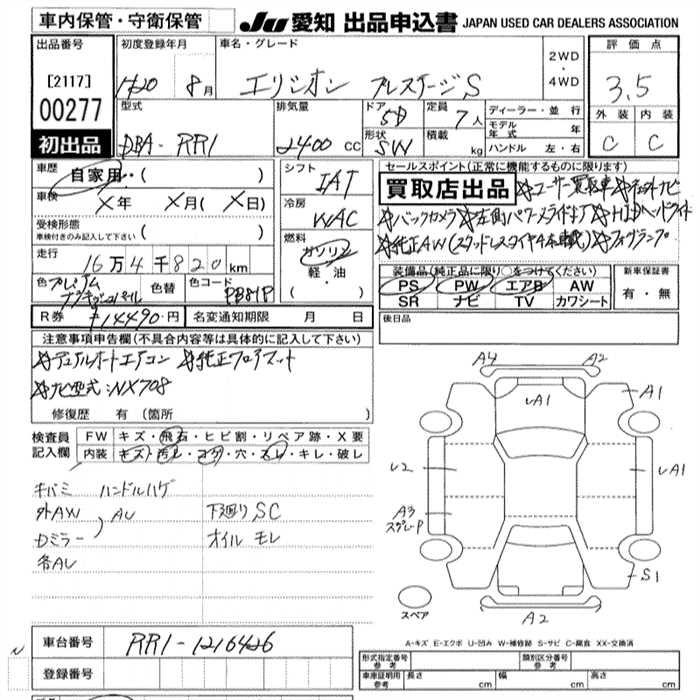 車内保管・守衛保管
JU 愛知 出品申込書 JAPAN USED CAR DEALERS ASSOCIATION
出品番号
[2117]
00277
初出品
初度登録年月
H20 8月
車名・グレード
エリシオン プレステージS
2WD
・
4WD
評価点
3.5
外装 内装
C C
型式
DBA-RR1
排気量
2400 CC
ドア
5D
形状
SW
定員
7人
積載
kg
ディーラー・並行
モデル年式 年
ハンドル 左・右
車歴
自家用・・( )
車検 X年 X月( X日)
受検形態
車検付きのみ記入して下さい ( )
走行
16万4千820km
色 プレミアム
色替
色コード PB81P
R券 ¥14490円 名変通知期限 月 日
シフト
IAT
冷房
WAC
燃料
ガソリン
軽・油
( )
セールスポイント(正常に機能するものに限ります)
買取店出品
☆ユーザー買取車
☆バックカメラ ☆左側パワースライドドア ☆HIDヘッドライト
☆純正AW(スタッドレスタイヤ4本積載) ☆フォグランプ
装備品(純正品に限り○をつけてください)
PS PW エアB AW
SR ナビ TV カワシート
新車保証書
有・無
後日品
注意事項申告欄(不具合内容等は具体的に記入して下さい)
☆デュアルオートエアコン ☆純正フロアマット
☆ナビ型式:NX708
修復歴 有(箇所 )
検査員
記入欄
FW キズ・飛石・ヒビ割・リペア跡・X要
内装 キズ・汚レ・コゲ・穴・スレ・キレ・破レ
キバミ ハンドルハゲ
外AW
Dミラー ) AU 下廻りSC
オイルモレ
各AU
A4 A2
UA1 A1
U2 UA1
A3
スプレーP
S1
A2
スペア
A-キズ E-エクボ U-凹み W-補修跡 S-サビ C-腐食 XX-交換済
車台番号 RR1-1216426
登録番号
形式指定番号 参考
類別区分番号 参考
車庫証明用 参考
長さ cm 幅 cm 高さ cm